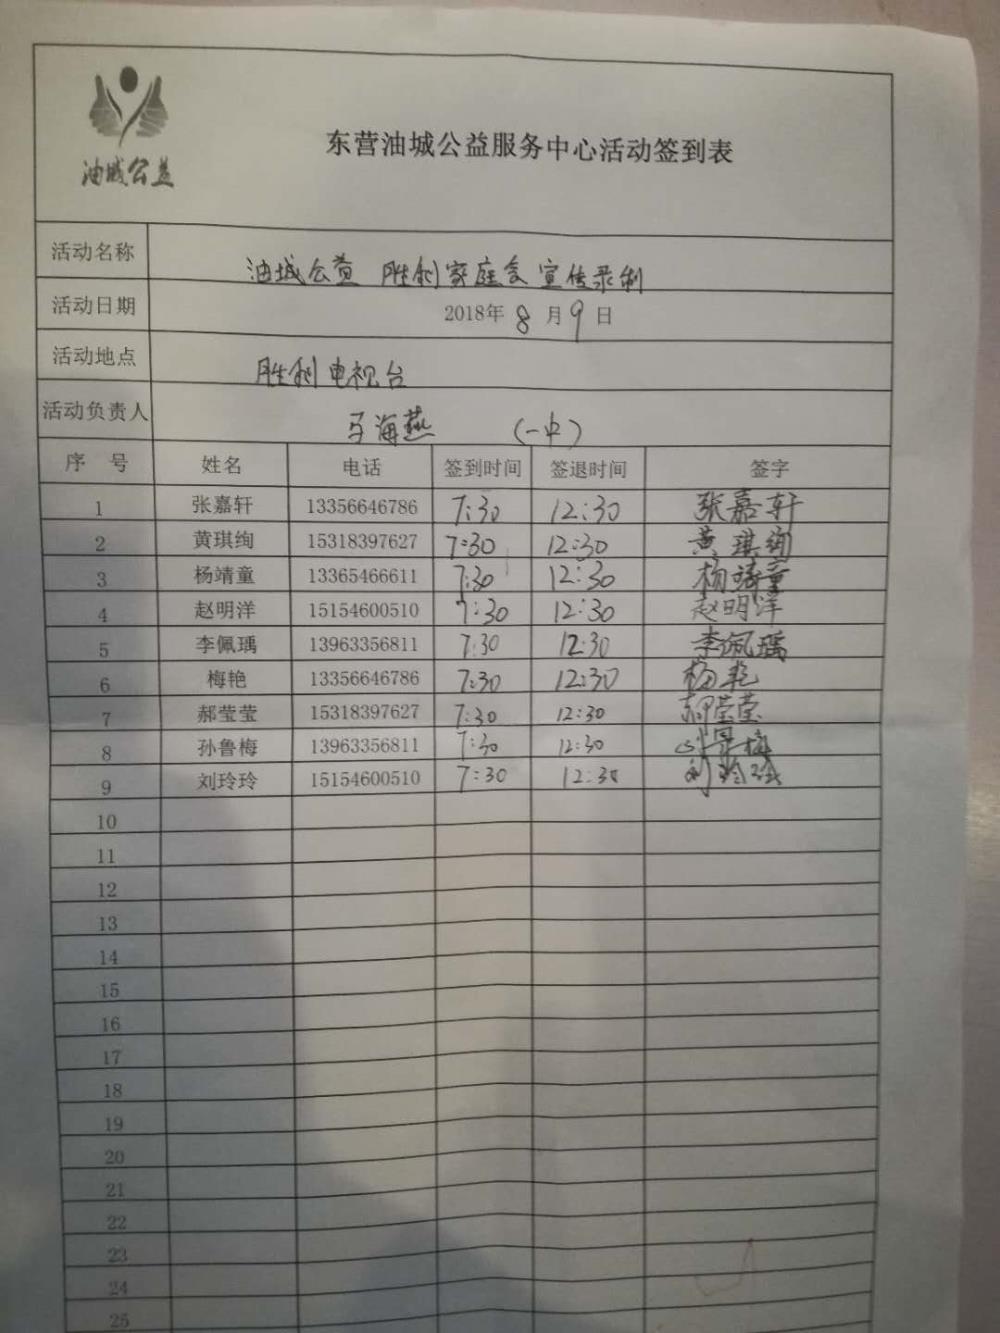 油城公益
东营油城公益服务中心活动签到表
活动名称 油城公益 胜利家庭会宣传录制
活动日期 2018年8月9日
活动地点 胜利电视台
活动负责人 马海燕 (一中)
序 号 姓名 电话 签到时间 签退时间 签字
1 张嘉轩 13356646786 7:30 12:30 张嘉轩
2 黄琪绚 15318397627 7:30 12:30 黄琪绚
3 杨靖童 13365466611 7:30 12:30 杨靖童
4 赵明洋 15154600510 7:30 12:30 赵明洋
5 李佩瑀 13963356811 7:30 12:30 李佩瑀
6 梅艳 13356646786 7:30 12:30 梅艳
7 郝莹莹 15318397627 7:30 12:30 郝莹莹
8 孙鲁梅 13963356811 7:30 12:30 孙鲁梅
9 刘玲玲 15154600510 7:30 12:30 刘玲玲
10
11
12
13
14
15
16
17
18
19
20
21
22
23
24
25